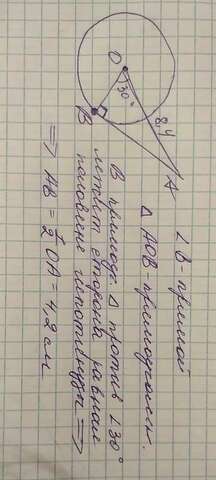 O
30°
8,4
B
A
∠ B - прямой
Δ AOB прямоугольн.
В прямоуг. Δ против ∠30°
лежит сторона равная
половине гипотенузы ⟹
⟹ AB = 1/2 OA = 4,2 см